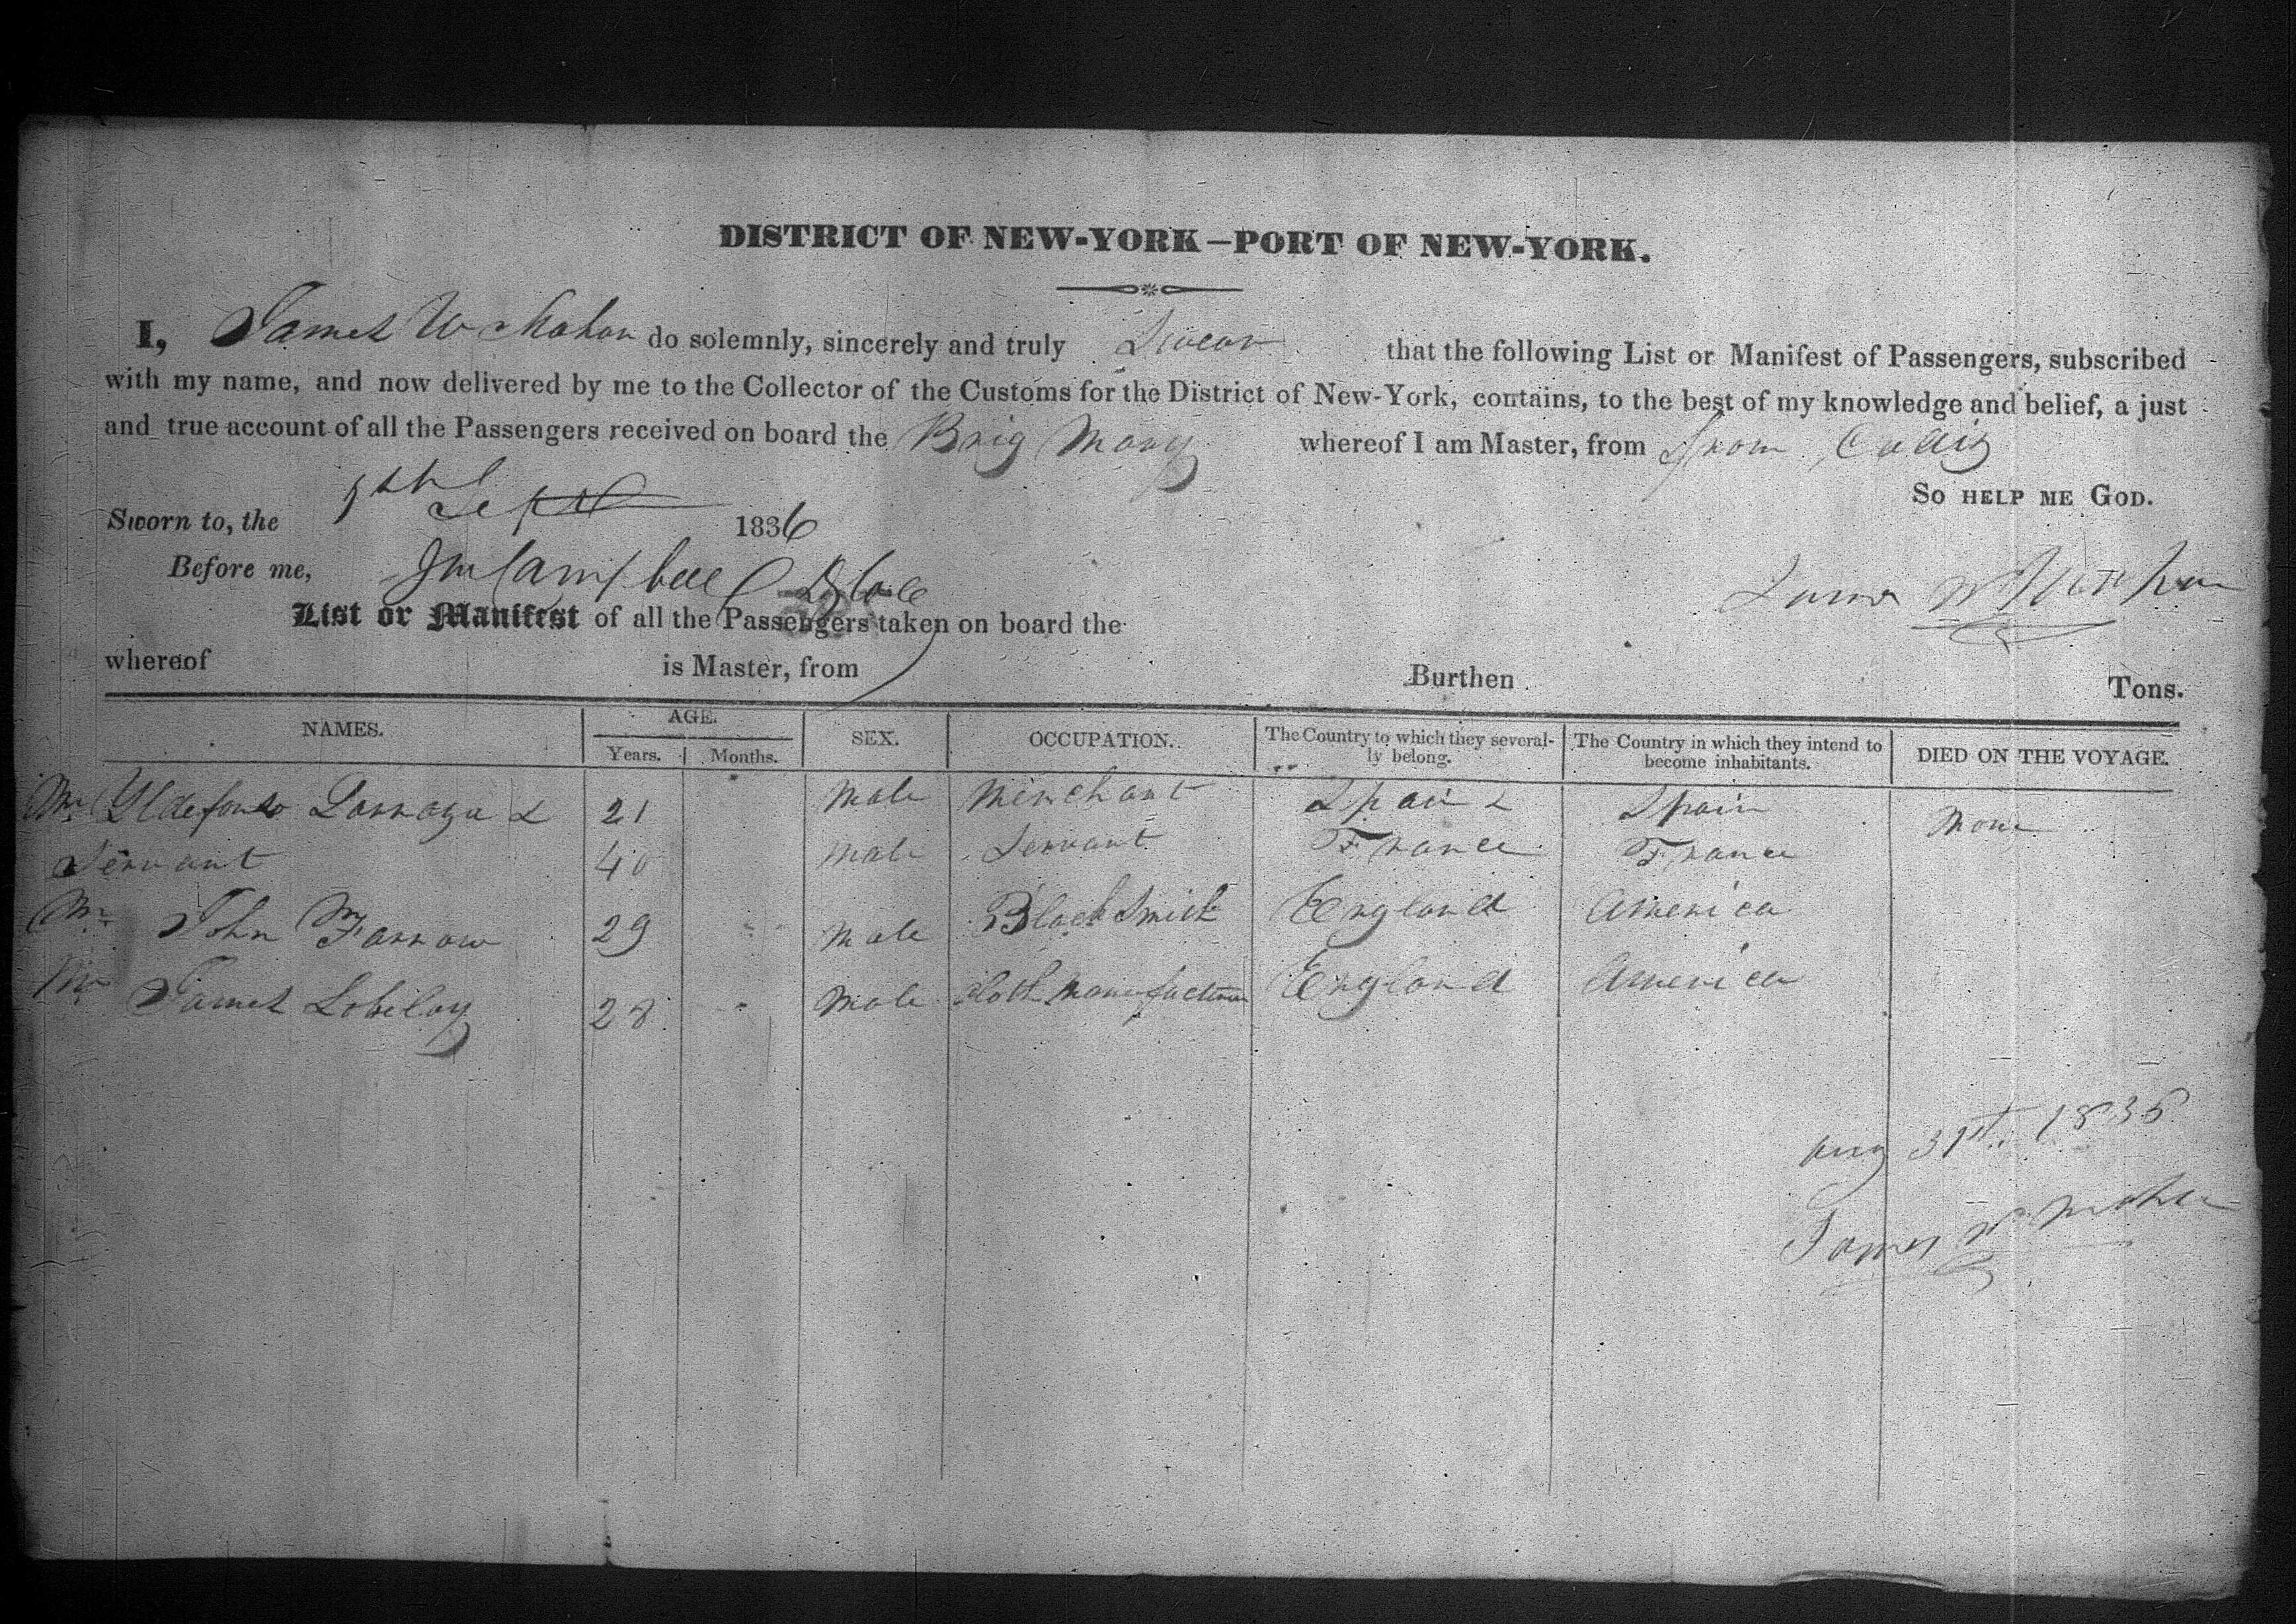 DISTRICT OF NEW-YORK—PORT OF NEW-YORK.
I, James W Mahan do solemnly, sincerely and truly Swear that the following List or Manifest of Passengers, subscribed
with my name, and now delivered by me to the Collector of the Customs for the District of New-York, contains, to the best of my knowledge and belief, a just
and true account of all the Passengers received on board the Brig Mary whereof I am Master, from from Cadiz
So HELP ME GOD.
Sworn to, the Sept 1836
Before me, Campbell
List or Manifest of all the Passengers taken on board the
whereof is Master, from Burthen Tons.
NAMES. AGE. SEX. OCCUPATION. The Country to which they severally belong. The Country in which they intend to become inhabitants. DIED ON THE VOYAGE.
Years. Months.
Mr Yldefonso 21 Male Merchant Spain & Spain None
Servant 40 Male Servant France France
Mr John Farrow 29 Male Black Smith England America
Mr James 28 Male Cloth Manufacturer England America
Aug 31st. 1836
James W Mahan